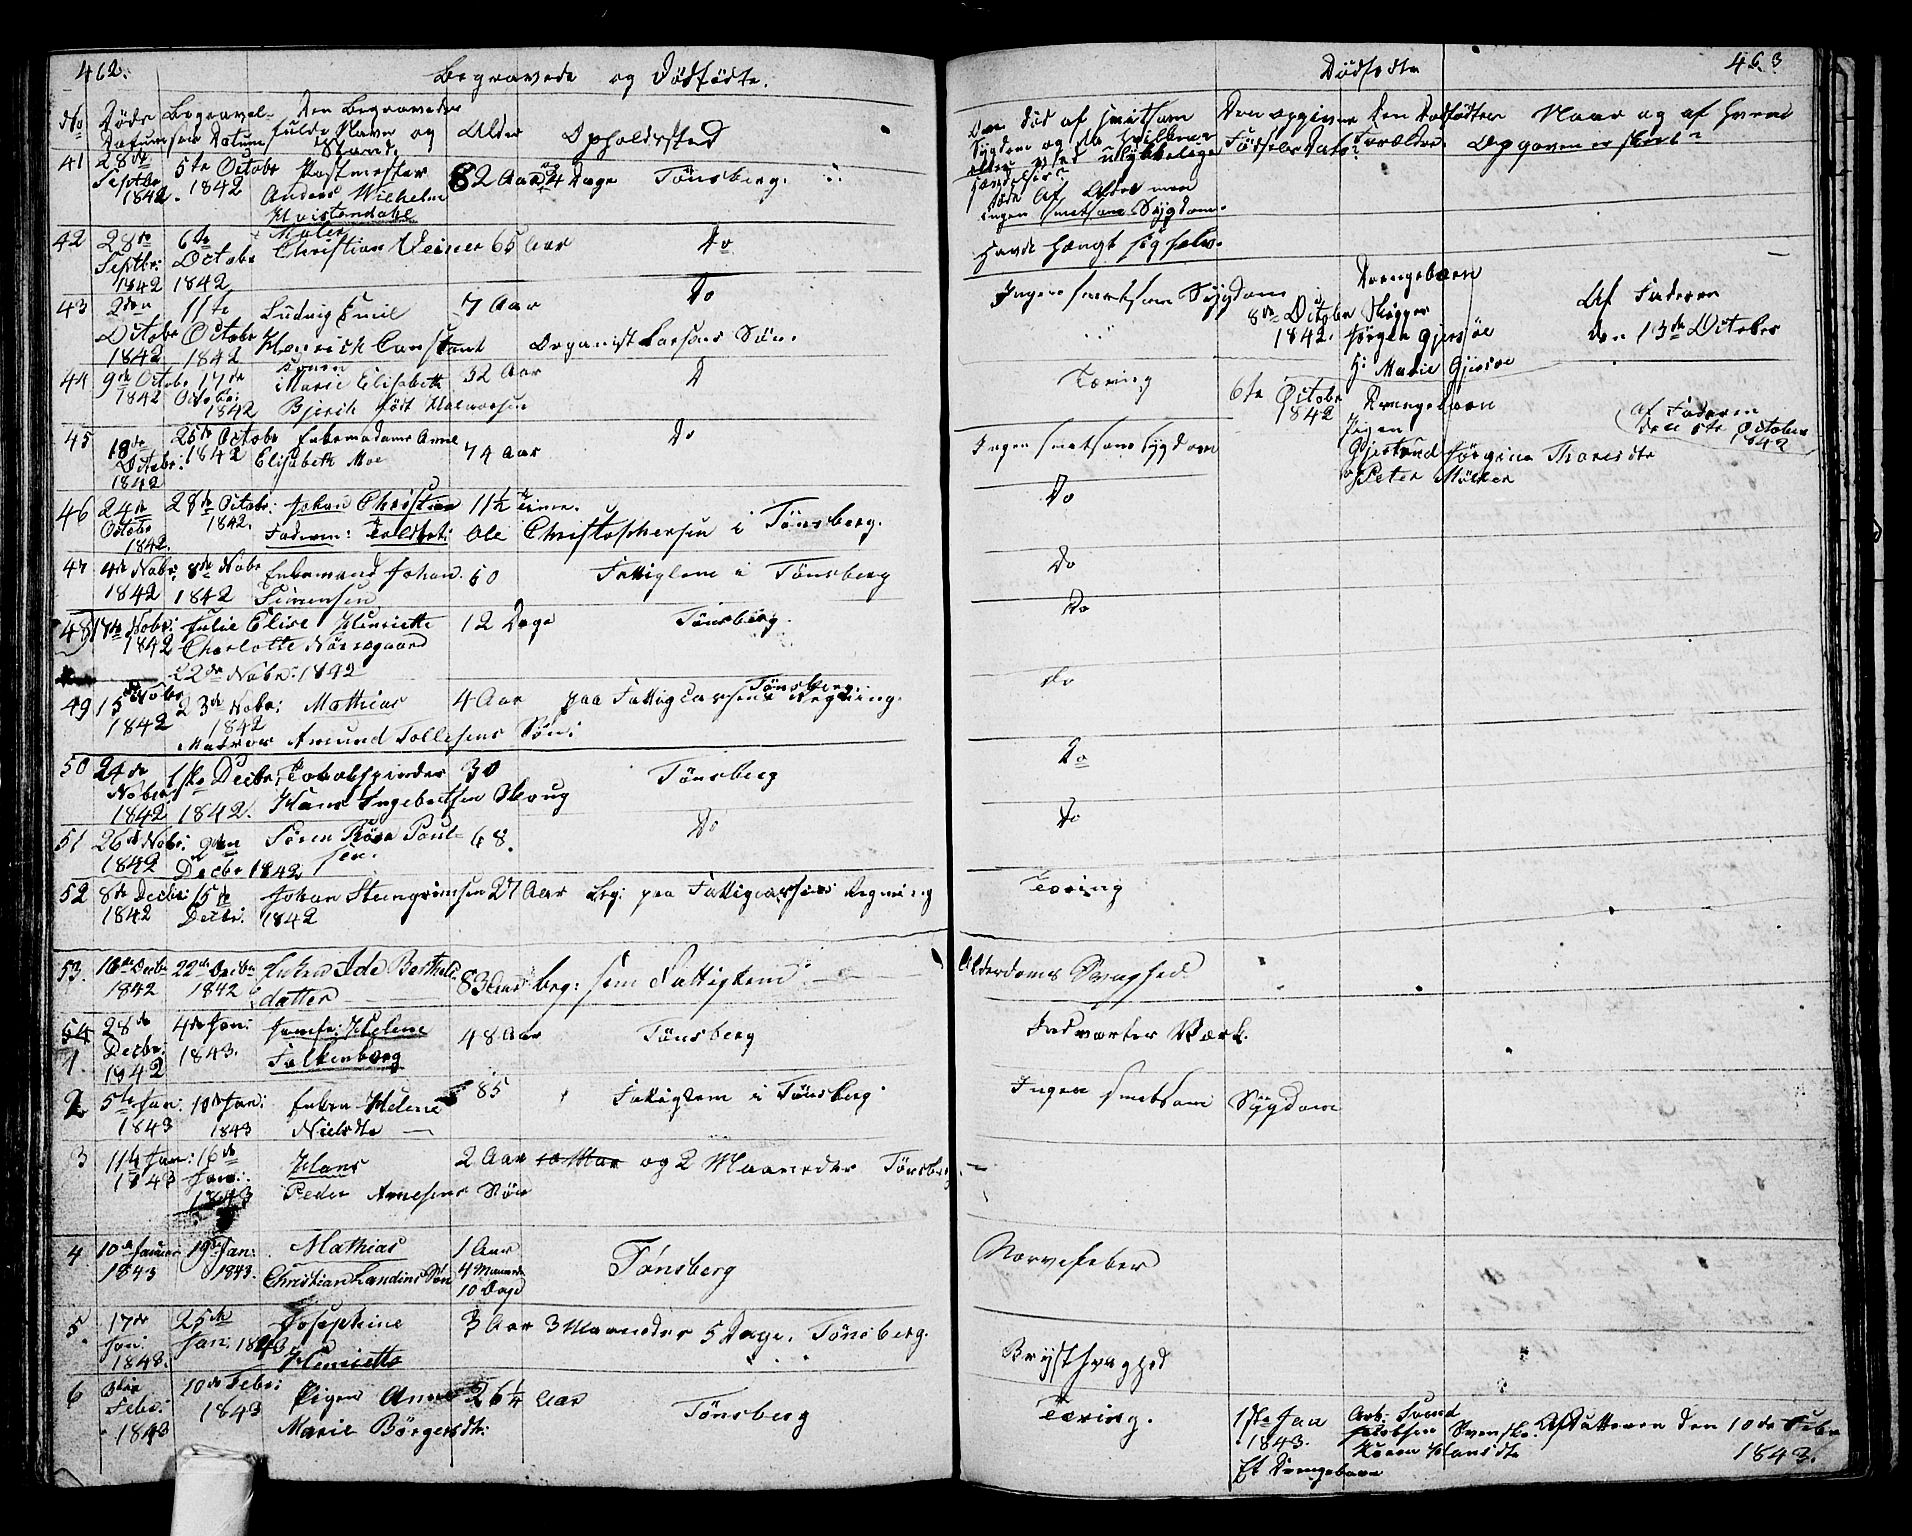 462.
Begravede og Dödfödte.
No Døds Datum Begravelsens Datum Den Begravedes fulde Navn og Stand. Alder Opholdssted
41 28de Septbr 1842. 5te Octobr 1842 Postmester Anders Wilhelm Kvistendahl 82 Aar og 4 Dage Tönsberg.
42 28de Septbr: 1842 6te Octobr 1842 Maler Christian Weiner 65 Aar Do
43 2den Octobr 1842 11te Octobr 1842 Ludvig Emil Henrich Constant 7 Aar Do
Organist Larsens Sön.
44 9de Octobr 1842 17de Octobr: 1842 Konen Marie Elisabeth Bjerch født Halvorsen 32 Aar D
45 18de Octobr: 1842 25de Octobr 1842 Enkemadame Anne Elisabeth Moe 74 Aar Do
46 24de Octobr 1842. 28de Octobr: 1842. Johan Christian 11½ Time.
Faderen: Toldbet: Ole Christophersen i Tönsberg.
47 4de Nobr: 1842 8de Nobr 1842 Enkemand Johan Simensen 60 Fattiglem i Tönsberg
48 17de Nobr: 1842 Julie Elise Henriette Charlotte Nörregaard 12 Dage Tönsberg.
22de Nobr: 1842
49 15de Nobr 1842 23de Nobr: 1842 Mathias 4 Aar paa Fattigcassens Regning. Tönsberg.
Matros Amund Tollefsens Sön:
50 24de Nobr 1842 1ste Decbr: 1842. Tobakspinder Hans Ingebretsen Skoug 30 Tönsberg
51 26de Nobr: 1842 2den Decbr 1842 Sören Röra Poulsen. 68. Do
52 8de Decbr 1842 15de Decbr: 1842 Johan Steengrimsen 27 Aar beg: paa Fattigcassens Regning
53. 16de Decbr 1842 22de Decbr 1842 Enken Ide Bertheldatter 83 Aar beg: som Fattiglem
54 1. 28de Decbr: 1842 4de Jan: 1843. Jomfr: Helene Falkenborg 48 Aar Tönsberg
2 5te Jan: 1843 10de Jan: 1843 Enken Helene Nielsdtr 85 Fattiglem i Tönsberg
3 11te Jan: 1843 16de Jan: 1843 Hans
Peder Arnesens Sön 2 Aar og 2 Maaneder Tönsberg.
4 10de Januar 1843 19de Jan: 1843. Mathias
Christian Landins Sön 1 Aar 4 Maaneder 10 Dage Tönsberg
5. 17de Jan: 1843. 25de Jan: 1843 Josephine Henriette 3 Aar 3 Maaneder 5 Dage. Tönsberg.
6 3die Febr: 1843 10de Febr: 1843 Pigen Anne Marie Börgersdtr: 26¼ Aar Tönsberg
463
Dödfødte
Den død af smitsom Sygdom og da hvilken eller ved ulykkelige Hændelser? Den opgivne Födsels Dato? Den Dødfødtes Forældre. Naar og af hvem Opgaven er skeet?
Døde af Alder men ingen smitsom Sygdom.
Havde hængt sig selv.
Ingen smitsom Sygdom
8de Octobr 1842. Drengebarn Skipper Jörgen Gjersöe H: Marie Gjersöe Af Faderen den 13de October
Tæring
6te Octobr 1842 Drengebarn Pigen Gjertrud Jörgine Thoresdtr og Peter Möller af Faderen den 6te October 1842
Ingen smitsom Sygdom
Do
Do
Do
do
Do
Do
Tæring
Alderdoms Svaghed.
Indvortes Værk.
Ingen smitsom Sygdom
Nervefeber
Brystsvaghed
Tæring.
1ste Jan 1843. Et Drengebarn Arb: Svend Jacobsen Svenske. Karen Hansdtr Af Fatteren den 10de Febr 1843.